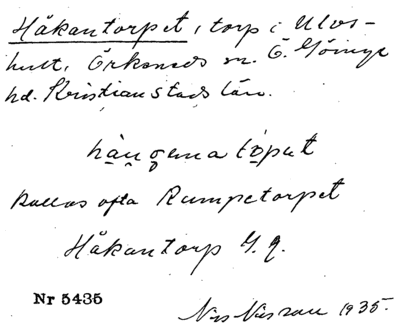 Håkantorpet, torp i Ulvs-
hult, Örkeneds sn. Ö. Göinge
hd. Kristianstads län.
kallas ofta Rumpetorpet
Håkantorp G. J.
Nr 5435
Nils Nilsson 1935.